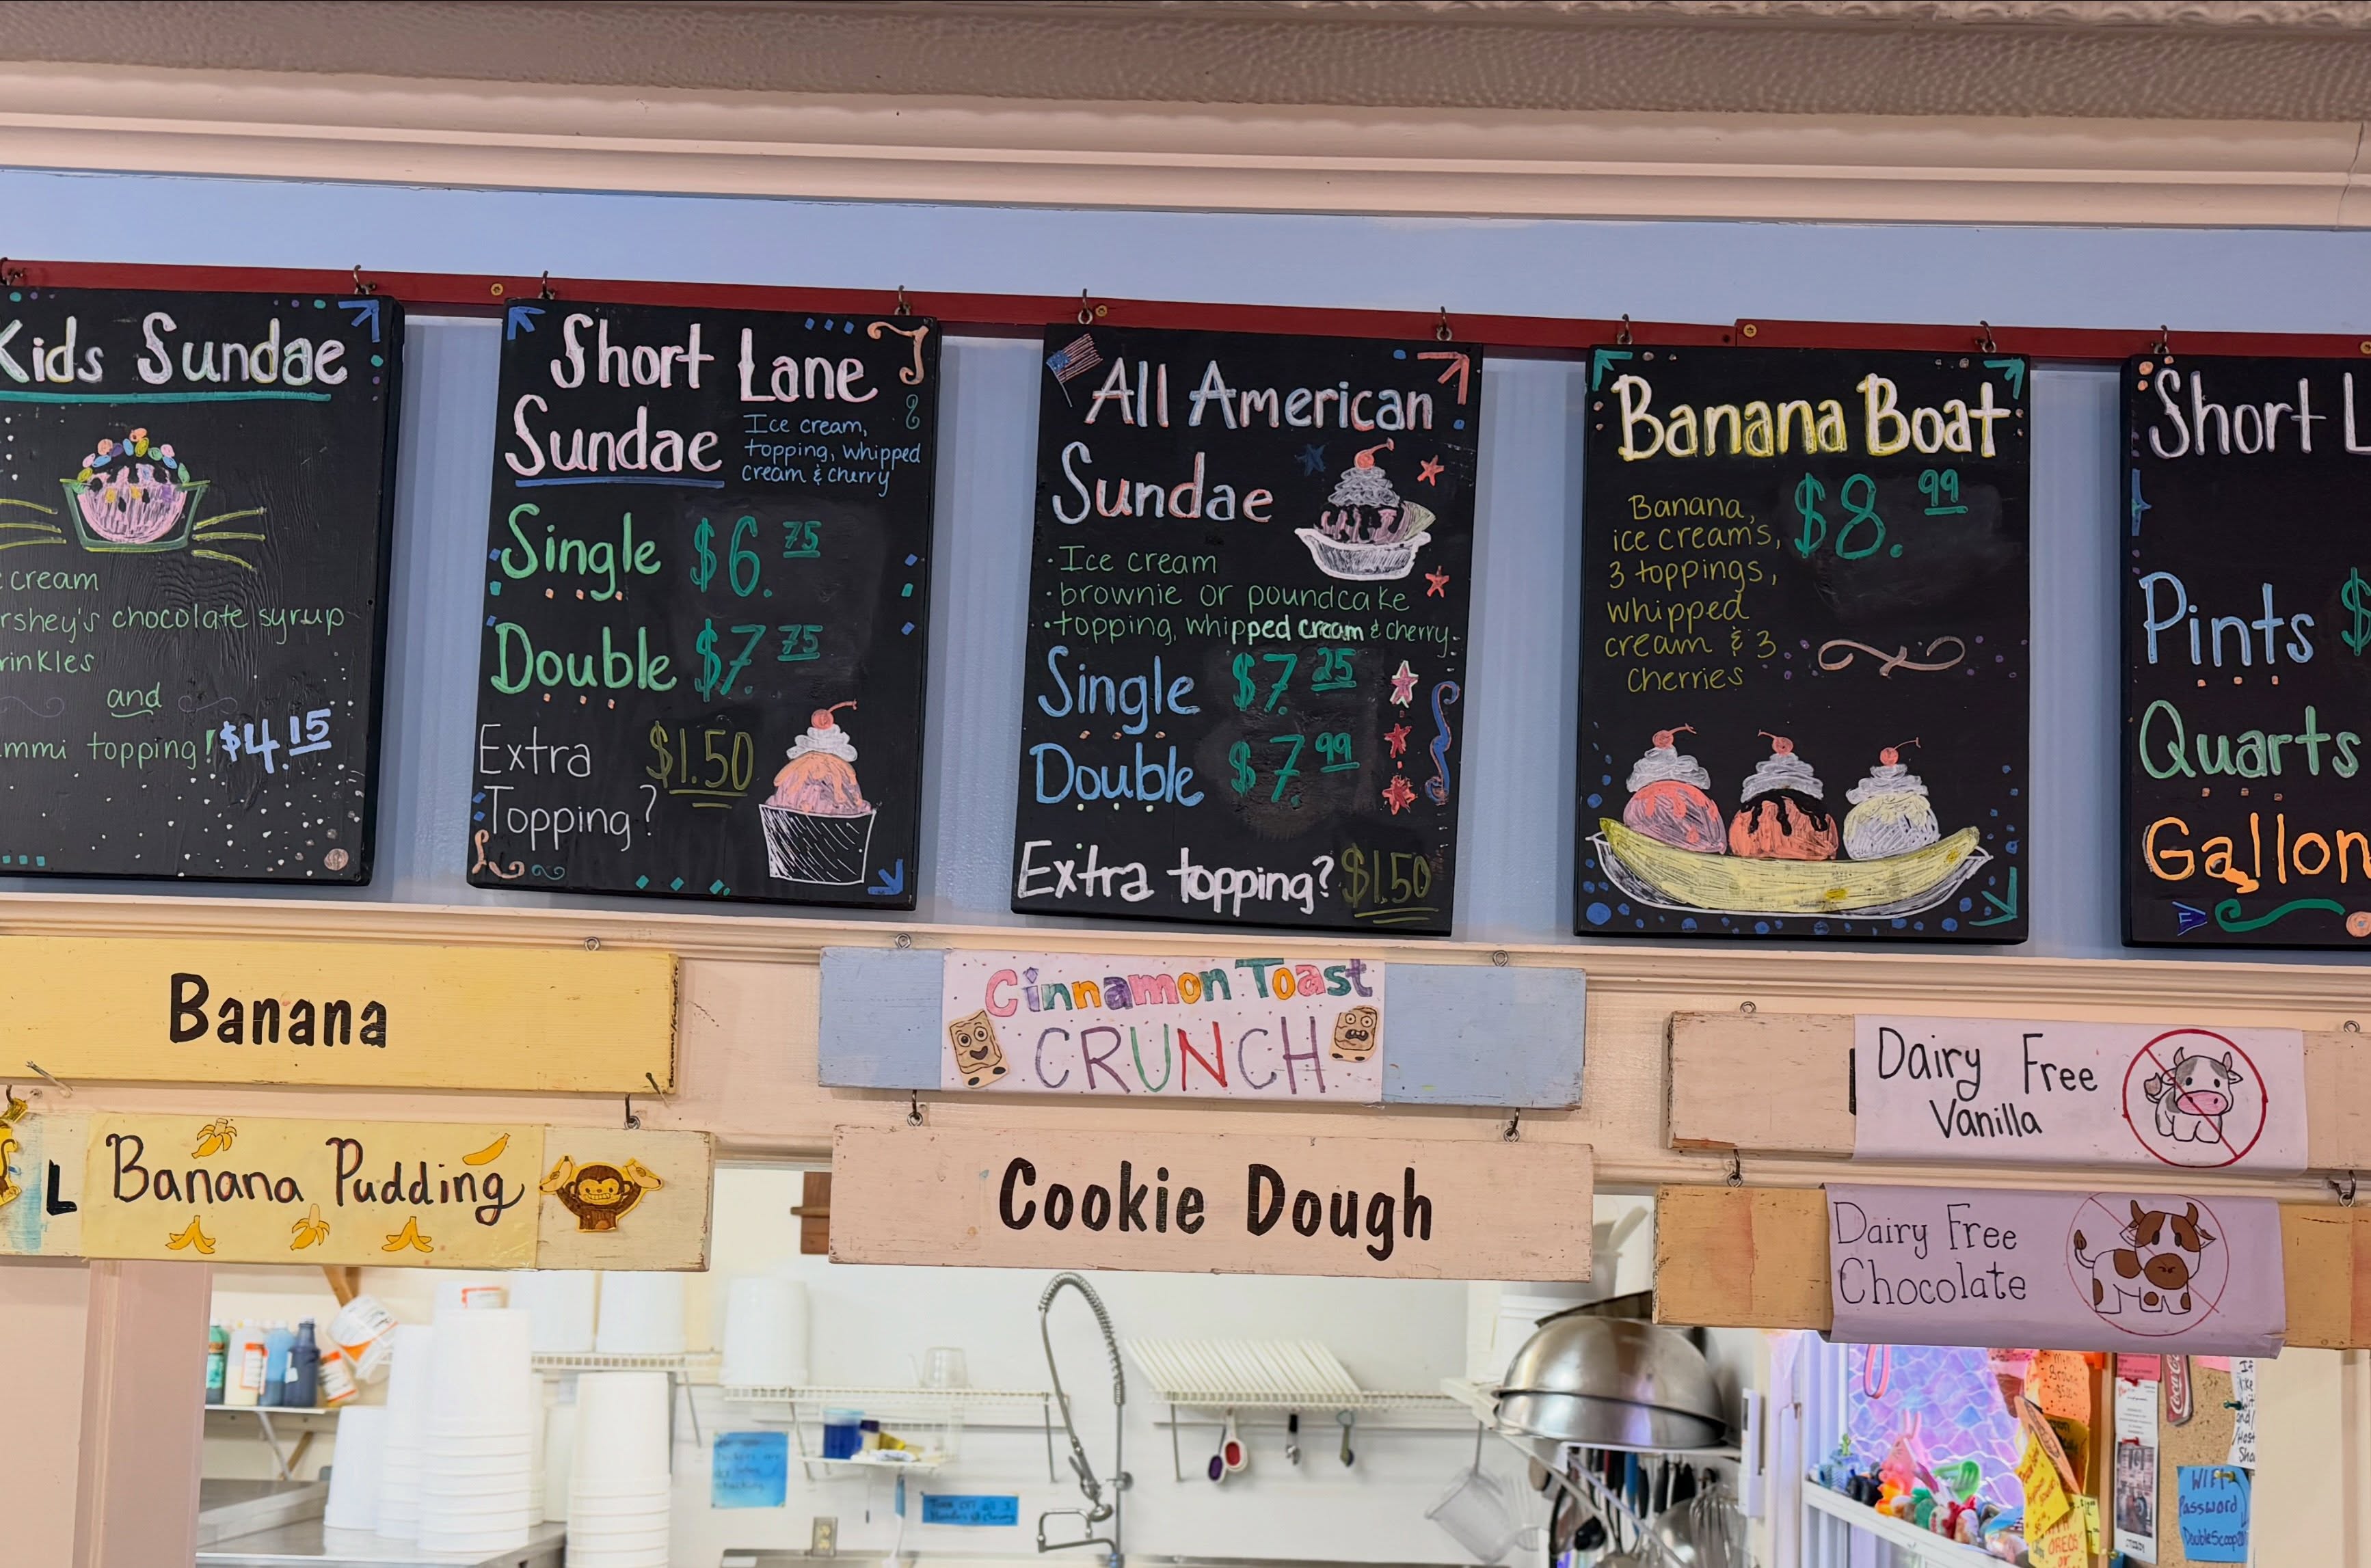 Kids Sundae
cream
chocolate syrup
and
topping! $4.15
Short Lane
Sundae
Ice cream,
topping, whipped
cream & cherry
Single $6.75
Double $7.75
Extra $1.50
Topping?
All American
Sundae
· Ice cream
· brownie or poundcake
· topping, whipped cream & cherry
Single $7.25
Double $7.99
Extra topping? $1.50
Banana Boat
$8.99
Banana,
ice creams,
3 toppings,
whipped
cream & 3
cherries
Short L
Pints $
Quarts
Gallon
Banana
L Banana Pudding
Cinnamon Toast
CRUNCH
Cookie Dough
Dairy Free
Vanilla
Dairy Free
Chocolate
Coca-Cola
WIFI
Password